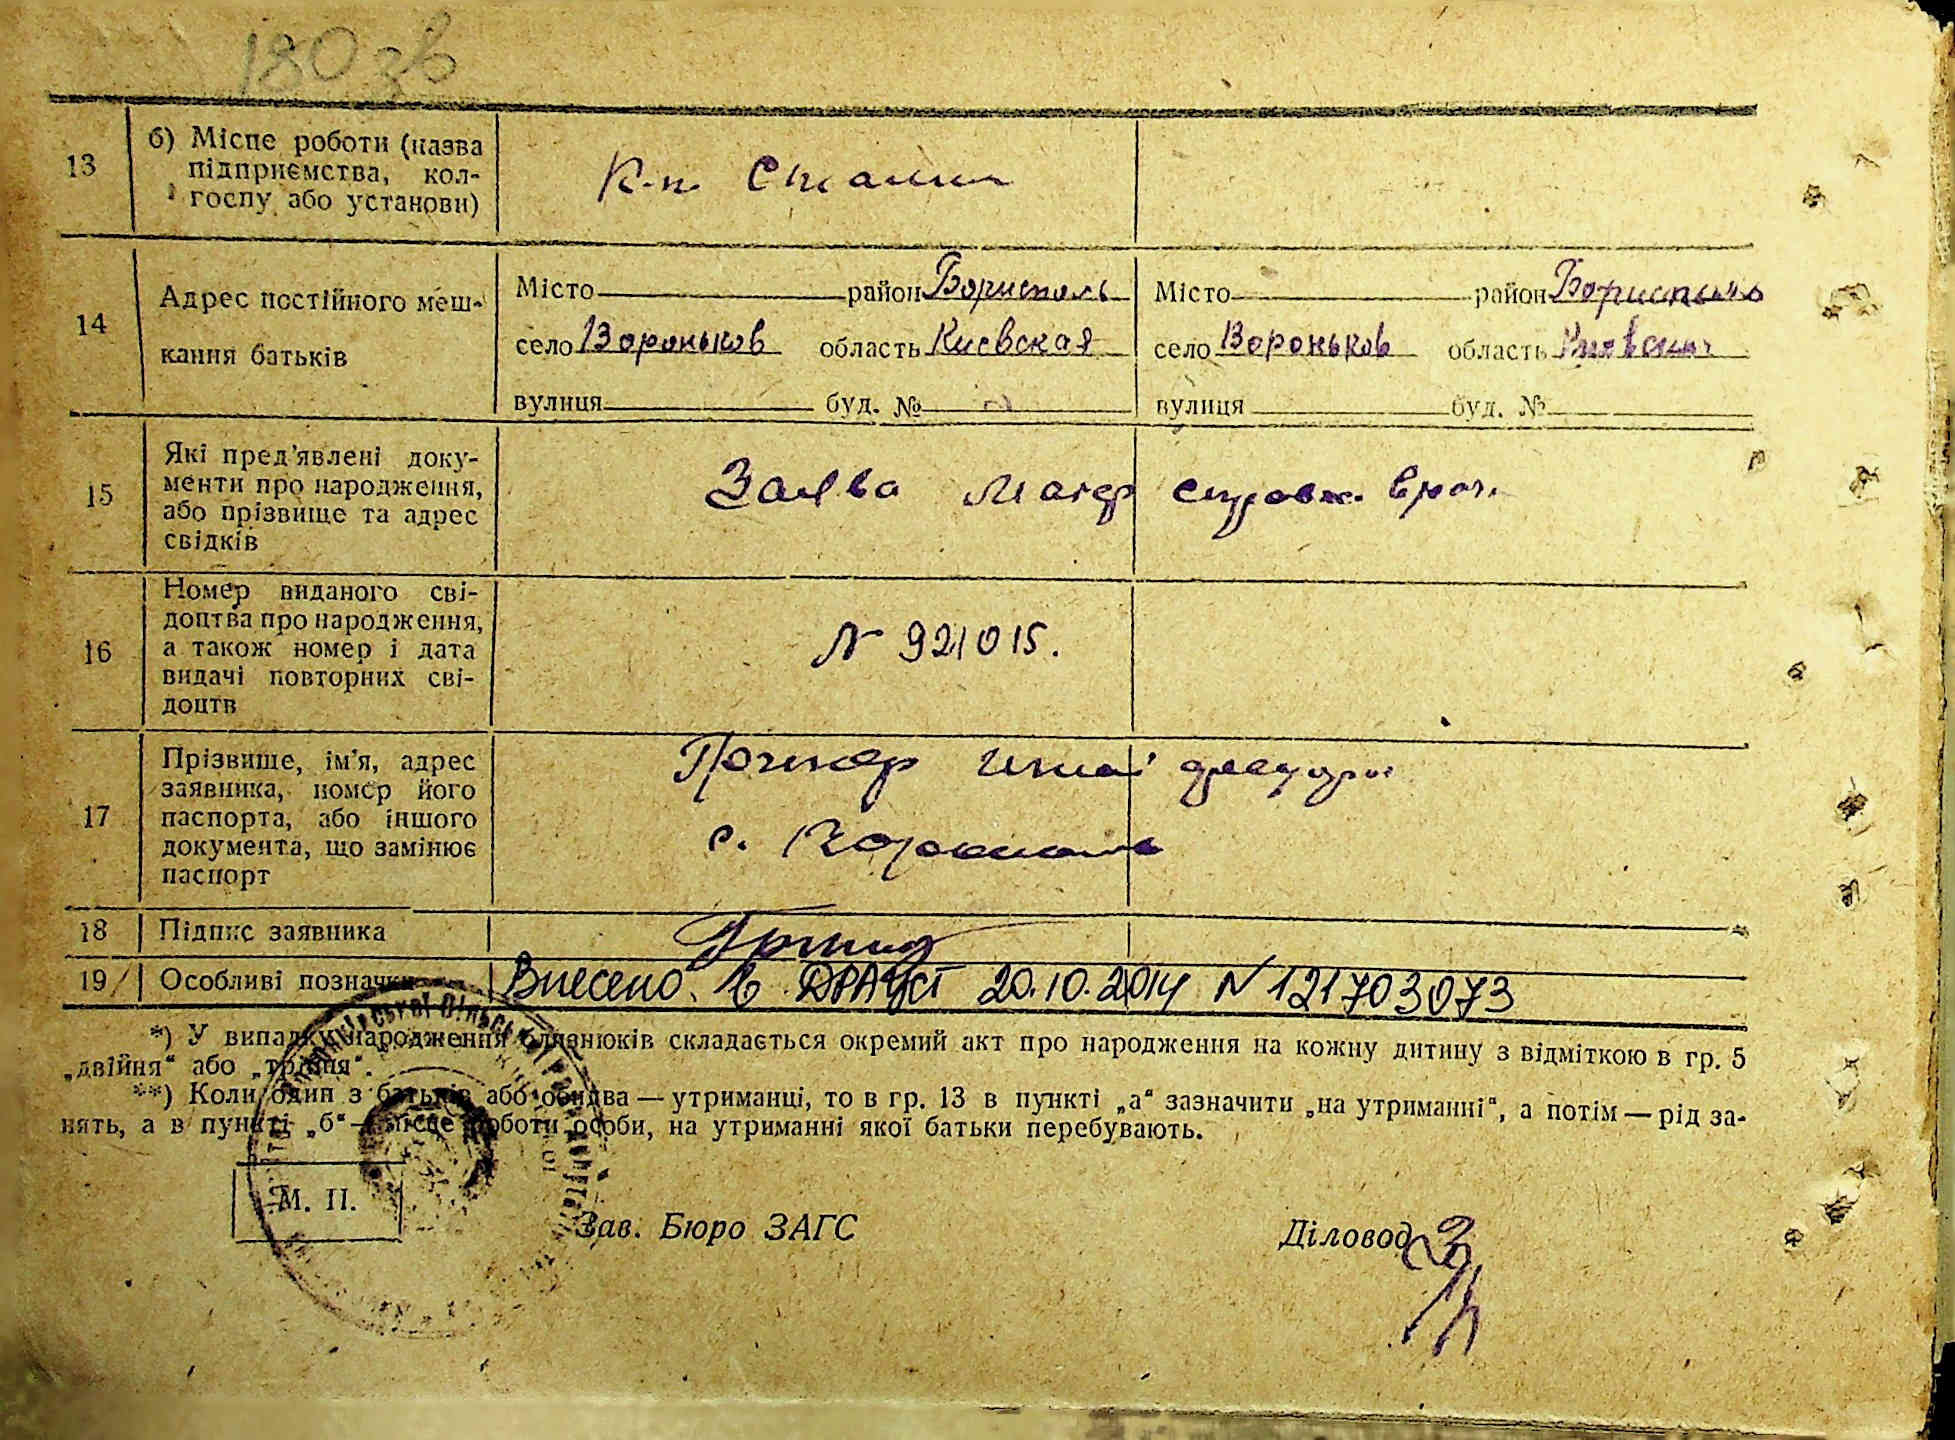 180 зв
13
б) Місце роботи (назва
підприємства, кол-
госпу або установи)
К-п. Сталин
14
Адрес постійного меш-
кання батьків
Місто район Бориспель
село Вороньков область Киевская
вулиця буд. №
Місто район Бориспель
село Вороньков область Киевская
вулиця буд. №
15
Які пред'явлені доку-
менти про народження,
або прізвище та адрес
свідків
Заява
16
Номер виданого сві-
доцтва про народження,
а також номер і дата
видачі повторних сві-
доцтв
N 921015.
17
Прізвище, ім'я, адрес
заявника, номер його
паспорта, або іншого
документа, що замінює
паспорт
с.
18 Підпис заявника
19 Особливі позначки Внесено в ДРАЦСГ 20.10.2014 N 121703073
*) У випадку народження близнюків складається окремий акт про народження на кожну дитину з відміткою в гр. 5
„двійня“ або „трійня“.
**) Коли один з батьків або обидва — утриманці, то в гр. 13 в пункті „а“ зазначити „на утриманні“, а потім — рід за-
нять, а в пункті „б“ — місце роботи особи, на утриманні якої батьки перебувають.
М. П.
Зав. Бюро ЗАГС
Діловод